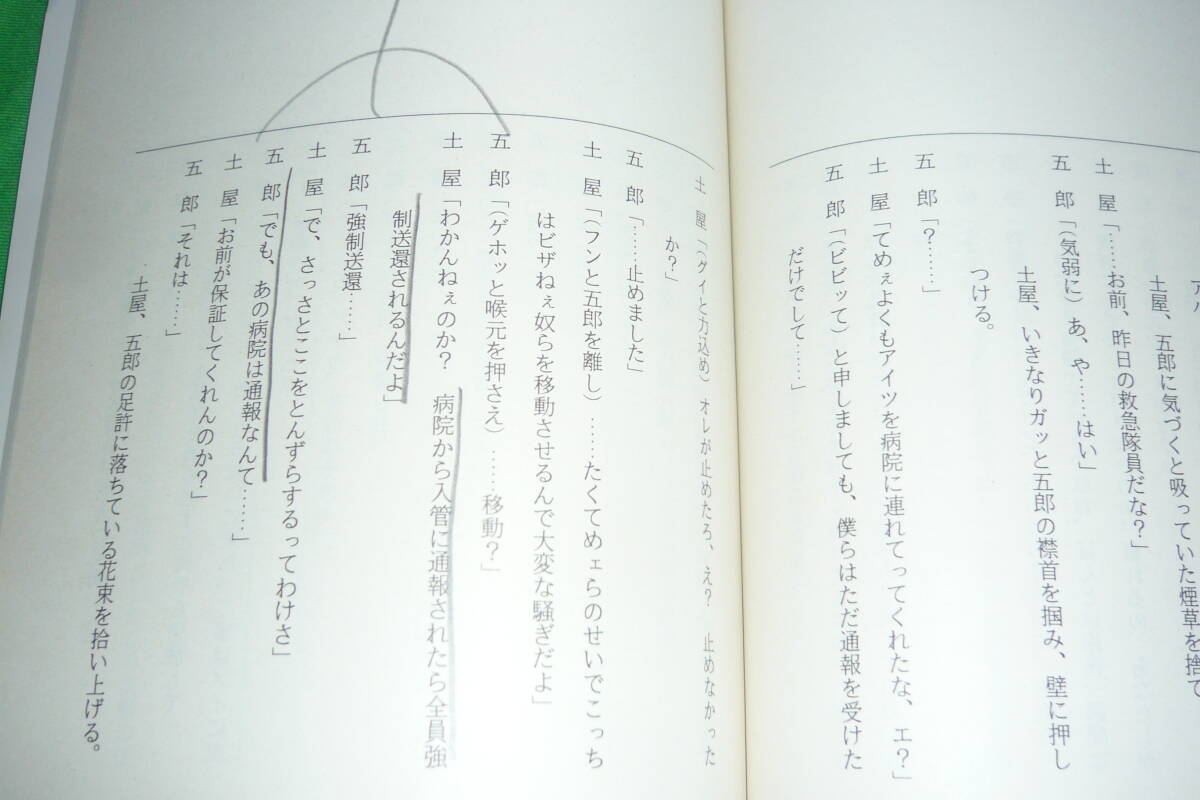 土屋、五郎に気づくと吸っていた煙草を捨て
土　屋「……お前、昨日の救急隊員だな？」
五　郎「（気弱に）あ、や……はい」
土屋、いきなりガッと五郎の襟首を掴み、壁に押し
つける。
五　郎「？……」
土　屋「てめぇよくもアイツを病院に連れてってくれたな、エ？」
五　郎「（ビビッて）と申しましても、僕らはただ通報を受けた
だけでして……」
土　屋「（グイと力込め）オレが止めたろ、え？　止めなかった
か？」
五　郎「……止めました」
土　屋「（フンと五郎を離し）……たくてめェらのせいでこっち
はビザねぇ奴らを移動させるんで大変な騒ぎだよ」
五　郎「（ゲホッと喉元を押さえ）……移動？」
土　屋「わかんねぇのか？　病院から入管に通報されたら全員強
制送還されるんだよ」
五　郎「強制送還……」
土　屋「で、さっさとここをとんずらするってわけさ」
五　郎「でも、あの病院は通報なんて……」
土　屋「お前が保証してくれんのか？」
五　郎「それは……」
土屋、五郎の足許に落ちている花束を拾い上げる。